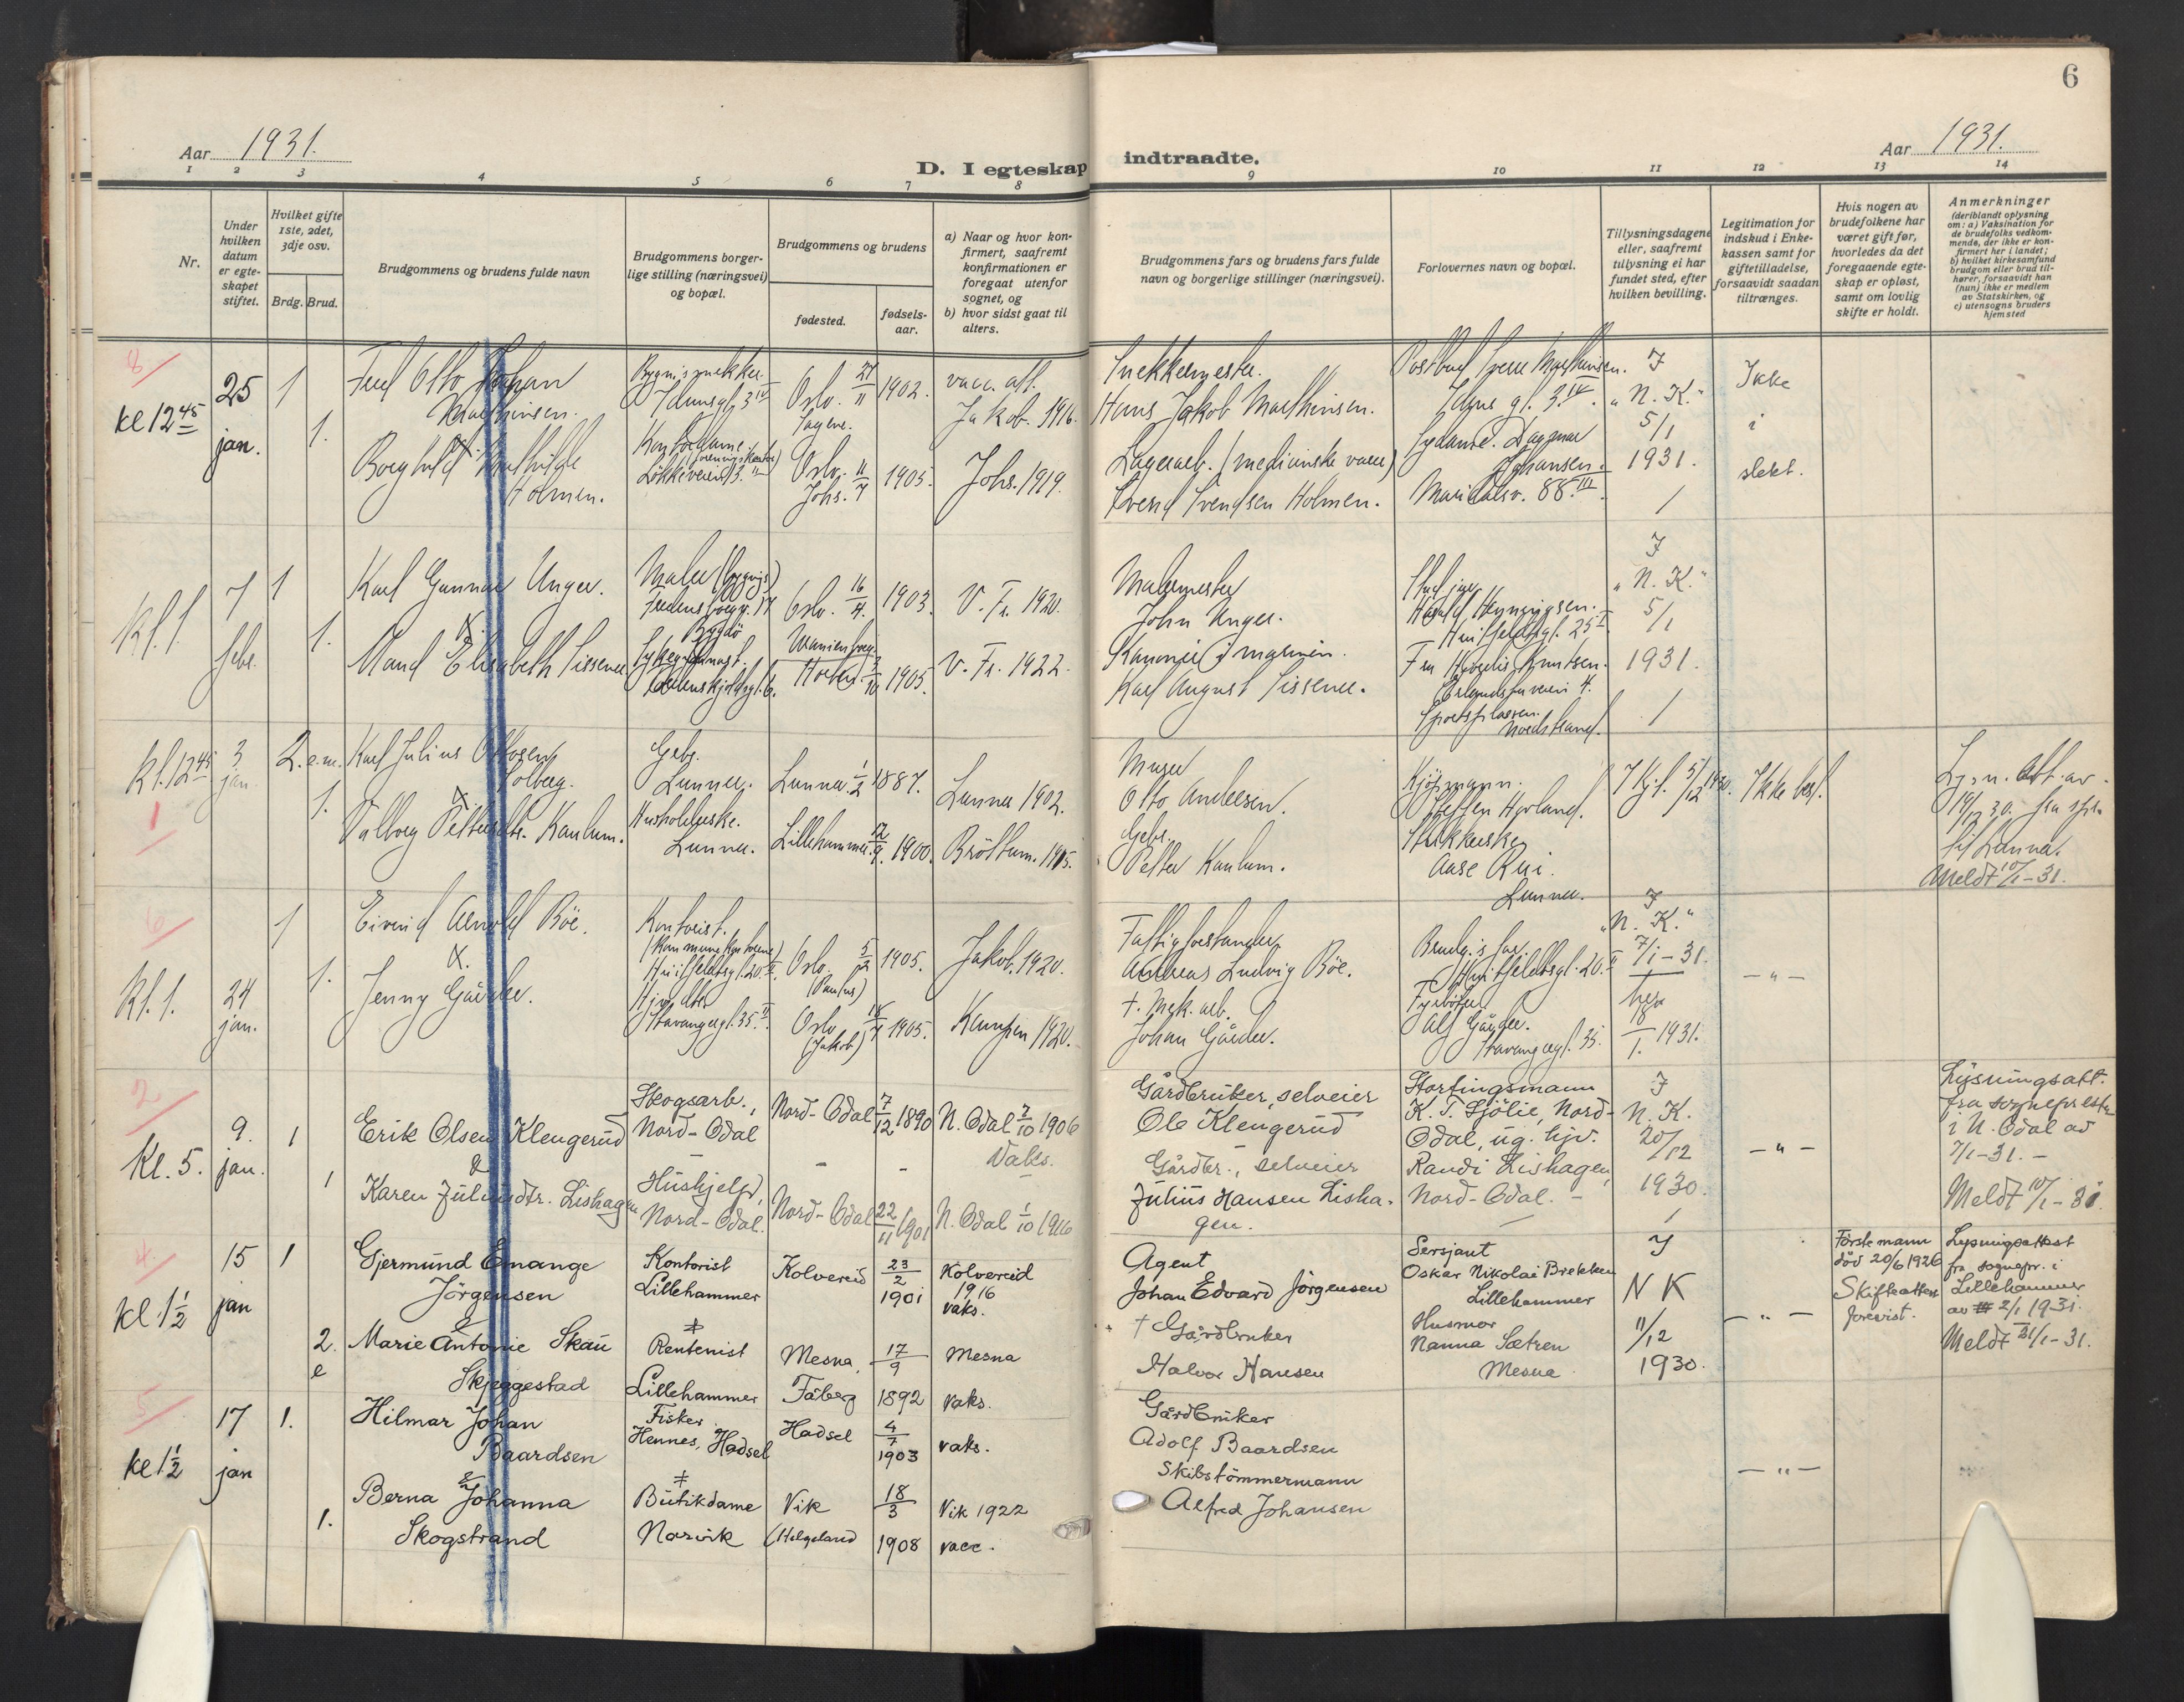 6
Aar 1931.
D. I egteskap indtraadte.
Aar 1931.
1 2 3 4 5 6 7 8 9 10 11 12 13 14
Nr.
Under
hvilken
datum
er egte-
skapet
stiftet.
Hvilket gifte
1ste, 2det,
3dje osv.
Brdg. Brud.
Brudgommens og brudens fulde navn
Brudgommens borger-
lige stilling (næringsvei)
og bopæl.
Brudgommens og brudens
fødested.
fødsels-
aar.
a) Naar og hvor kon-
firmert, saafremt
konfirmationen er
foregaat utenfor
sognet, og
b) hvor sidst gaat til
alters.
Brudgommens fars og brudens fars fulde
navn og borgerlige stillinger (næringsvei).
Forlovernes navn og bopæl.
Tillysningsdagene
eller, saafremt
tillysning ei har
fundet sted, efter
hvilken bevilling.
Legitimation for
indskud i Enke-
kassen samt for
giftetilladelse,
forsaavidt saadan
tiltrænges.
Hvis nogen av
brudefolkene har
været gift før,
hvorledes da det
foregaaende egte-
skap er opløst,
samt om lovlig
skifte er holdt.
Anmerkninger
(deriblandt oplysning
om: a) Vaksination for
de brudefolks vedkom-
mende, der ikke er kon-
firmert her i landet;
b) hvilket kirkesamfund
brudgom eller brud til-
hører, forsaavidt han
(hun) ikke er medlem
av Statskirken, og
c) utensogns bruders
hjemsted
8
kl 12 45
25
jan.
1
1.
Otto Johan
Mathinsen.
Borghild Mathilde
Holmen.
Idunsgt. 3 IV
Kontordame
Løkkeveien 3. II
Oslo. 21/11 1902.
Sagene.
Oslo. 11/7 1905.
Johs.
vacc. att.
Jakob. 1916.
Johs. 1919.
Snekkermester.
Hans Jakob Mathinsen.
Lagerarb. (medisinske varer)
Svend Svendsen Holmen.
Postbud Sverre Mathinsen.
Iduns gt. 3 IV.
Sydame. Dagmar
Johansen.
Maridalsv. 88 III.
I
"N. K."
5/1
1931.
Ikke
i
slekt.
Kl. 1
7
febr.
1
1.
Karl Gunnar Unger.
&
Maud Elisabeth Sissener
Maler (bygnings)
Fredensborgv. 17
Bygdø
Oslo. 16/4. 1903.
Uranienborg.
Horten 1905.
V. Fr. 1920.
V. Fr. 1922.
Malermester
John Unger.
Kanonier i marinen.
Karl August Sissener.
Stud. jur.
Harald Henningsen.
Huitfeldtsgt. 25 I
Fru Knutsen.
Sportsplassen.
Nordstrand.
I
"N. K."
5/1
1931.
Kl. 12 45
1
3
jan.
2. e.m.
1.
Karl Julius Ottosen
Solberg.
&
Valborg Pettersdtr. Kanlum.
Gbr.
Lunner.
Husholderske.
Lunner.
Lunner 1/2 1887.
Lillehammer. 12/9. 1900.
Lunner 1902.
Brøttum. 1915.
Murer
Otto Andersen.
Gbr.
Petter Kanlum.
Kjøpmann.
Steffen Hovland.
Strikkerske
Aase Rui.
Lunner.
5/12 1930.
Ikke besl.
Lysn. att. av
19/12 30. fra spr.
til Lunner.
Meldt 10/1-31.
6
Kl. 1.
24
jan.
1
1.
Eivind Arnold Böe.
&
Jenny Gårder.
Kontorist.
(kommunekontorene)
Huitfeldtsgt. 20. II.
Hjv. dtr.
Stavangergt. 35. II.
Oslo. 5/2 1905.
(Paulus)
Oslo 18/4 1905.
(Jakob)
Jakob. 1920.
Kampen 1920.
Fattigforstander
Andreas Ludvig Böe.
† Mek. arb.
Johan Gårder.
Brudg.s far
Huitfeldtsgt. 20. II
Fyrbøter
Alf Gårder.
Stavangergt. 35.
I
"N. K."
7/1-31.
her
18/1. 1931.
- " -
2
Kl. 5.
9.
jan.
1
1
Erik Olsen Klengerud
&
Karen Juliusdtr. Lishagen
Skogsarb.,
Nord-Odal
Hushjelp,
Nord-Odal.
Nord-Odal 7/12 1890
Nord-Odal 22/11 1901
N. Odal 7/10 1906
Vaks.
N. Odal 1/10 1916
Gårdbruker, selveier
Ole Klengerud
Gårdbr., selveier
Julius Hansen Lisha-
gen.
Stortingsmann
K. T. Sjölie, Nord-
Odal, ug. hjv.
Randi Lishagen,
Nord-Odal. -
I
N. K.
20/12
1930.
- " -
Lysningsatt.
fra sogneprestn
i N. Odal av
7/1-31. -
Meldt 10/1-31.
4
kl 1 1/2
15
jan
1
2.
e
Gjermund Emange
Jörgensen
&
Marie Antonie Skau
Skjeggestad
Kontorist
Lillehammer
Rentenist
Lillehammer
Kolvereid 23/2 1901
Mesna, 17/9
Fåberg 1892
Kolvereid
1916
vaks.
Mesna
vaks.
Agent
Johan Edvard Jörgensen
† Gårdbruker
Halvor Hansen
Sersjant
Oskar Nikolai Brekken
Lillehammer
Husmor
Nanna Sætren
Mesna
I
N K
11/12
1930.
- " -
Förste mann
död 20/6 1926
Skifteattest
forevist.
Lysningsattest
fra sognepr. i
Lillehammer
av 2/1 1931.
Meldt 21/1-31.
5
kl 1 1/2
17
jan
1.
1.
Hilmar Johan
Baardsen
&
Berna Johanna
Skogstrand
Fisker
Hennes, Hadsel
Butikdame
Narvik
Hadsel 4/7 1903
Vik 18/3
(Helgeland 1908
vaks.
Vik 1922
vacc.
Gårdbruker
Adolf Baardsen
Skibstömmermann
Alfred Johansen
- " -